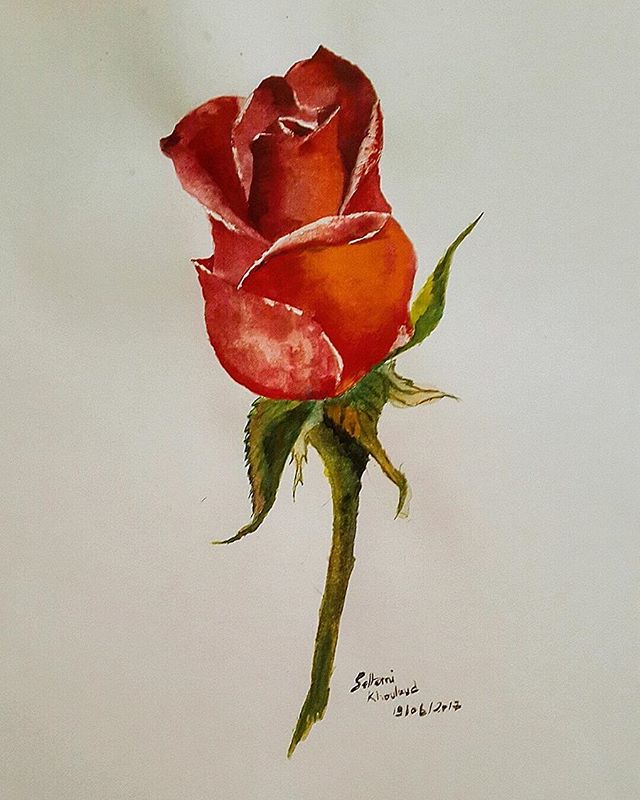 Sellami
Khouloud
19/06/2017